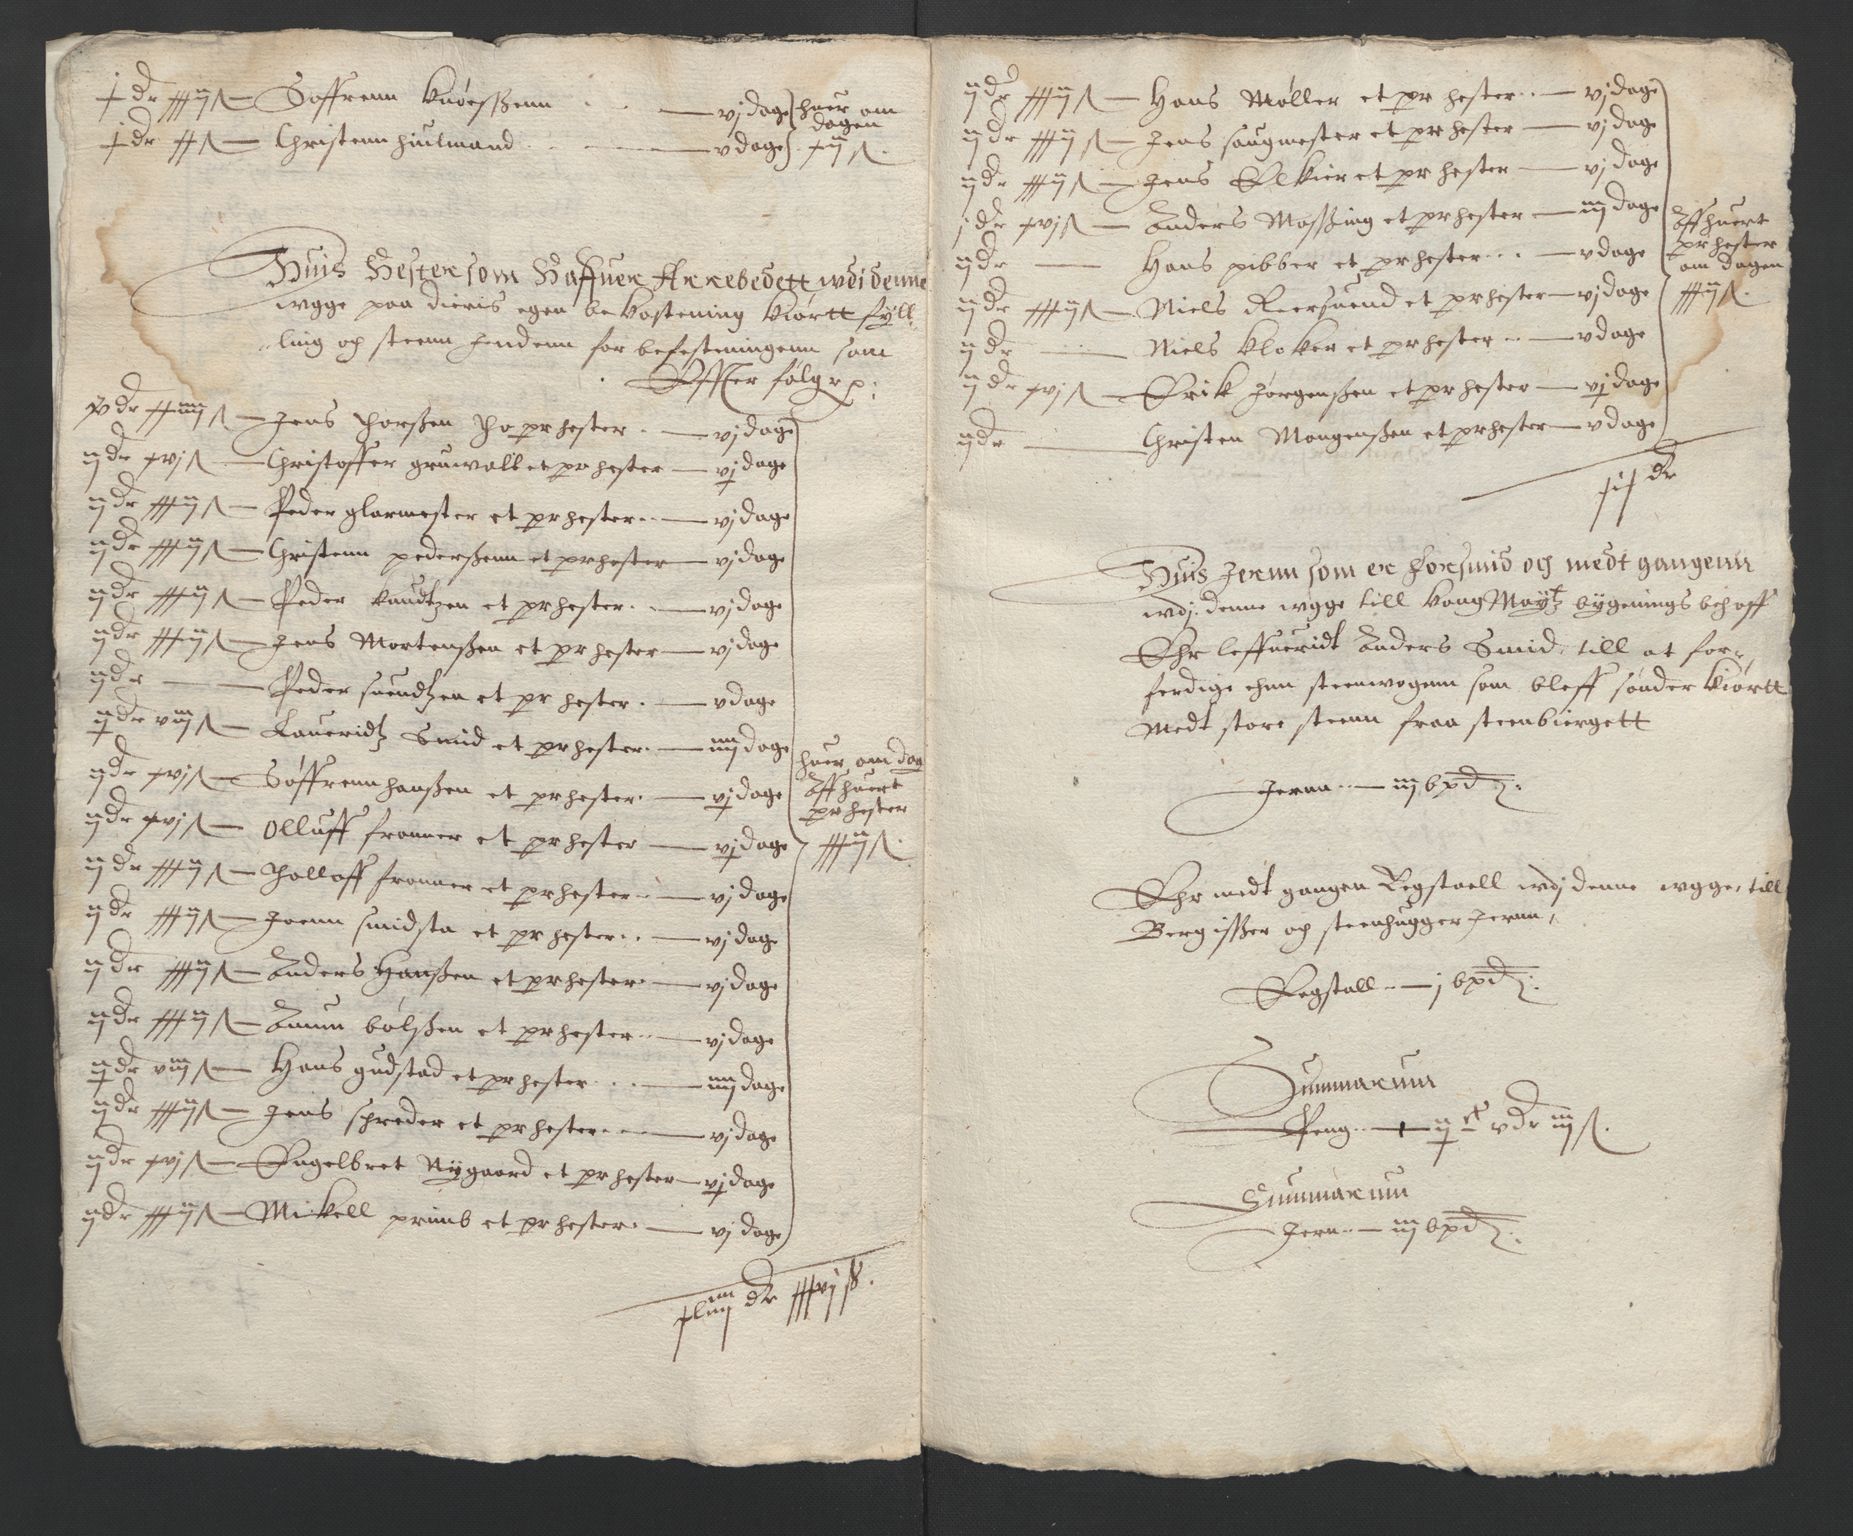 j dr xxxij s — Søffrenn knoessenn — vj dage huer om dagen
j dr xx s — Christenn hiulmand — v dage xij s.
Huis Hester som Haffuer Arrebedett wdi denne
wgge paa dieris egen bekostening kiørtt fyll-
ling och steenn hendenn for befestningenn som
Effter følger:
dr s — Jens Thorssen tho par hester — vj dage
ij dr xvj s — Christoffer gruwall et par hester — vj dage
ij dr xxxij s — Peder glarmester et par hester — vj dage
ij dr xxxij s — Christenn pederssenn et par hester — vj dage
ij dr xxxij s — Peder knudtzen et par hester — vj dage
ij dr xxxij s — Jens Mortenssen et par hester — vj dage
ij dr — Peder suendtzen et par hester — v dage
dr viij s — Laueridtz Smid et par hester — iiij dage
ij dr xvj s — Søffrenn hanssen et par hester — vj dage
ij dr xvj s — Olluff fronner et par hester — vj dage
ij dr xxxij s — Tolloff fronner et par hester — vj dage
ij dr xxxij s — Joenn smidsta et par hester — vj dage
ij dr xxxij s — Anders Hanssen et par hester — vj dage
ij dr xxxij s — Amun bølssen et par hester — vj dage
dr viij s — Hans gudstad et par hester — iiij dage
ij dr xxxij s — Jens schreder et par hester — vj dage
ij dr xvj s — Engelbret Nygaard et par hester — vj dage
ij dr xxxij s — Mickell prims et par hester — vj dage
huer om dag
Aff huert
par hester
xxxij s.
xliiij dr xxxvj s.
ij dr xxxij s — Hans Møller et par hester — vj dage
ij dr xxxij s — Jens saugmester et par hester — vj dage
ij dr xxxij s — Jens Elkier et par hester — vj dage
j dr xvj s — Anders Mossing et par hester — iiij dage
ij dr — Hans pibber et par hester — v dage
ij dr xxxij s — Niels Reersuend et par hester — vj dage
ij dr — Niels kloker et par hester — v dage
ij dr xvj s — Erik Jørgenssen et par hester — vj dage
ij dr — Christen Mongenssen et par hester — v dage
Aff huert
par hester
om dagen
xxxij s.
xix dr
Huis Jernn som er forsmid och medt gangenn
wdj denne wgge till kong Maytz bygenings behoff
Ehr leffueridt Anders Smid till at for-
ferdige ehnn steenwogenn som bleff sønder kiørtt
Medt store steenn fraa steenbiergett
Jernn — iij bpd:
Ehr medt gangen Regstaell wdj denne wgge till
Bergisser och steenhugger Jernn,
Regstall — j bpd:
Summarum
Peng — ijc v dr iij s.
Summarum
Jern — iij bpd: